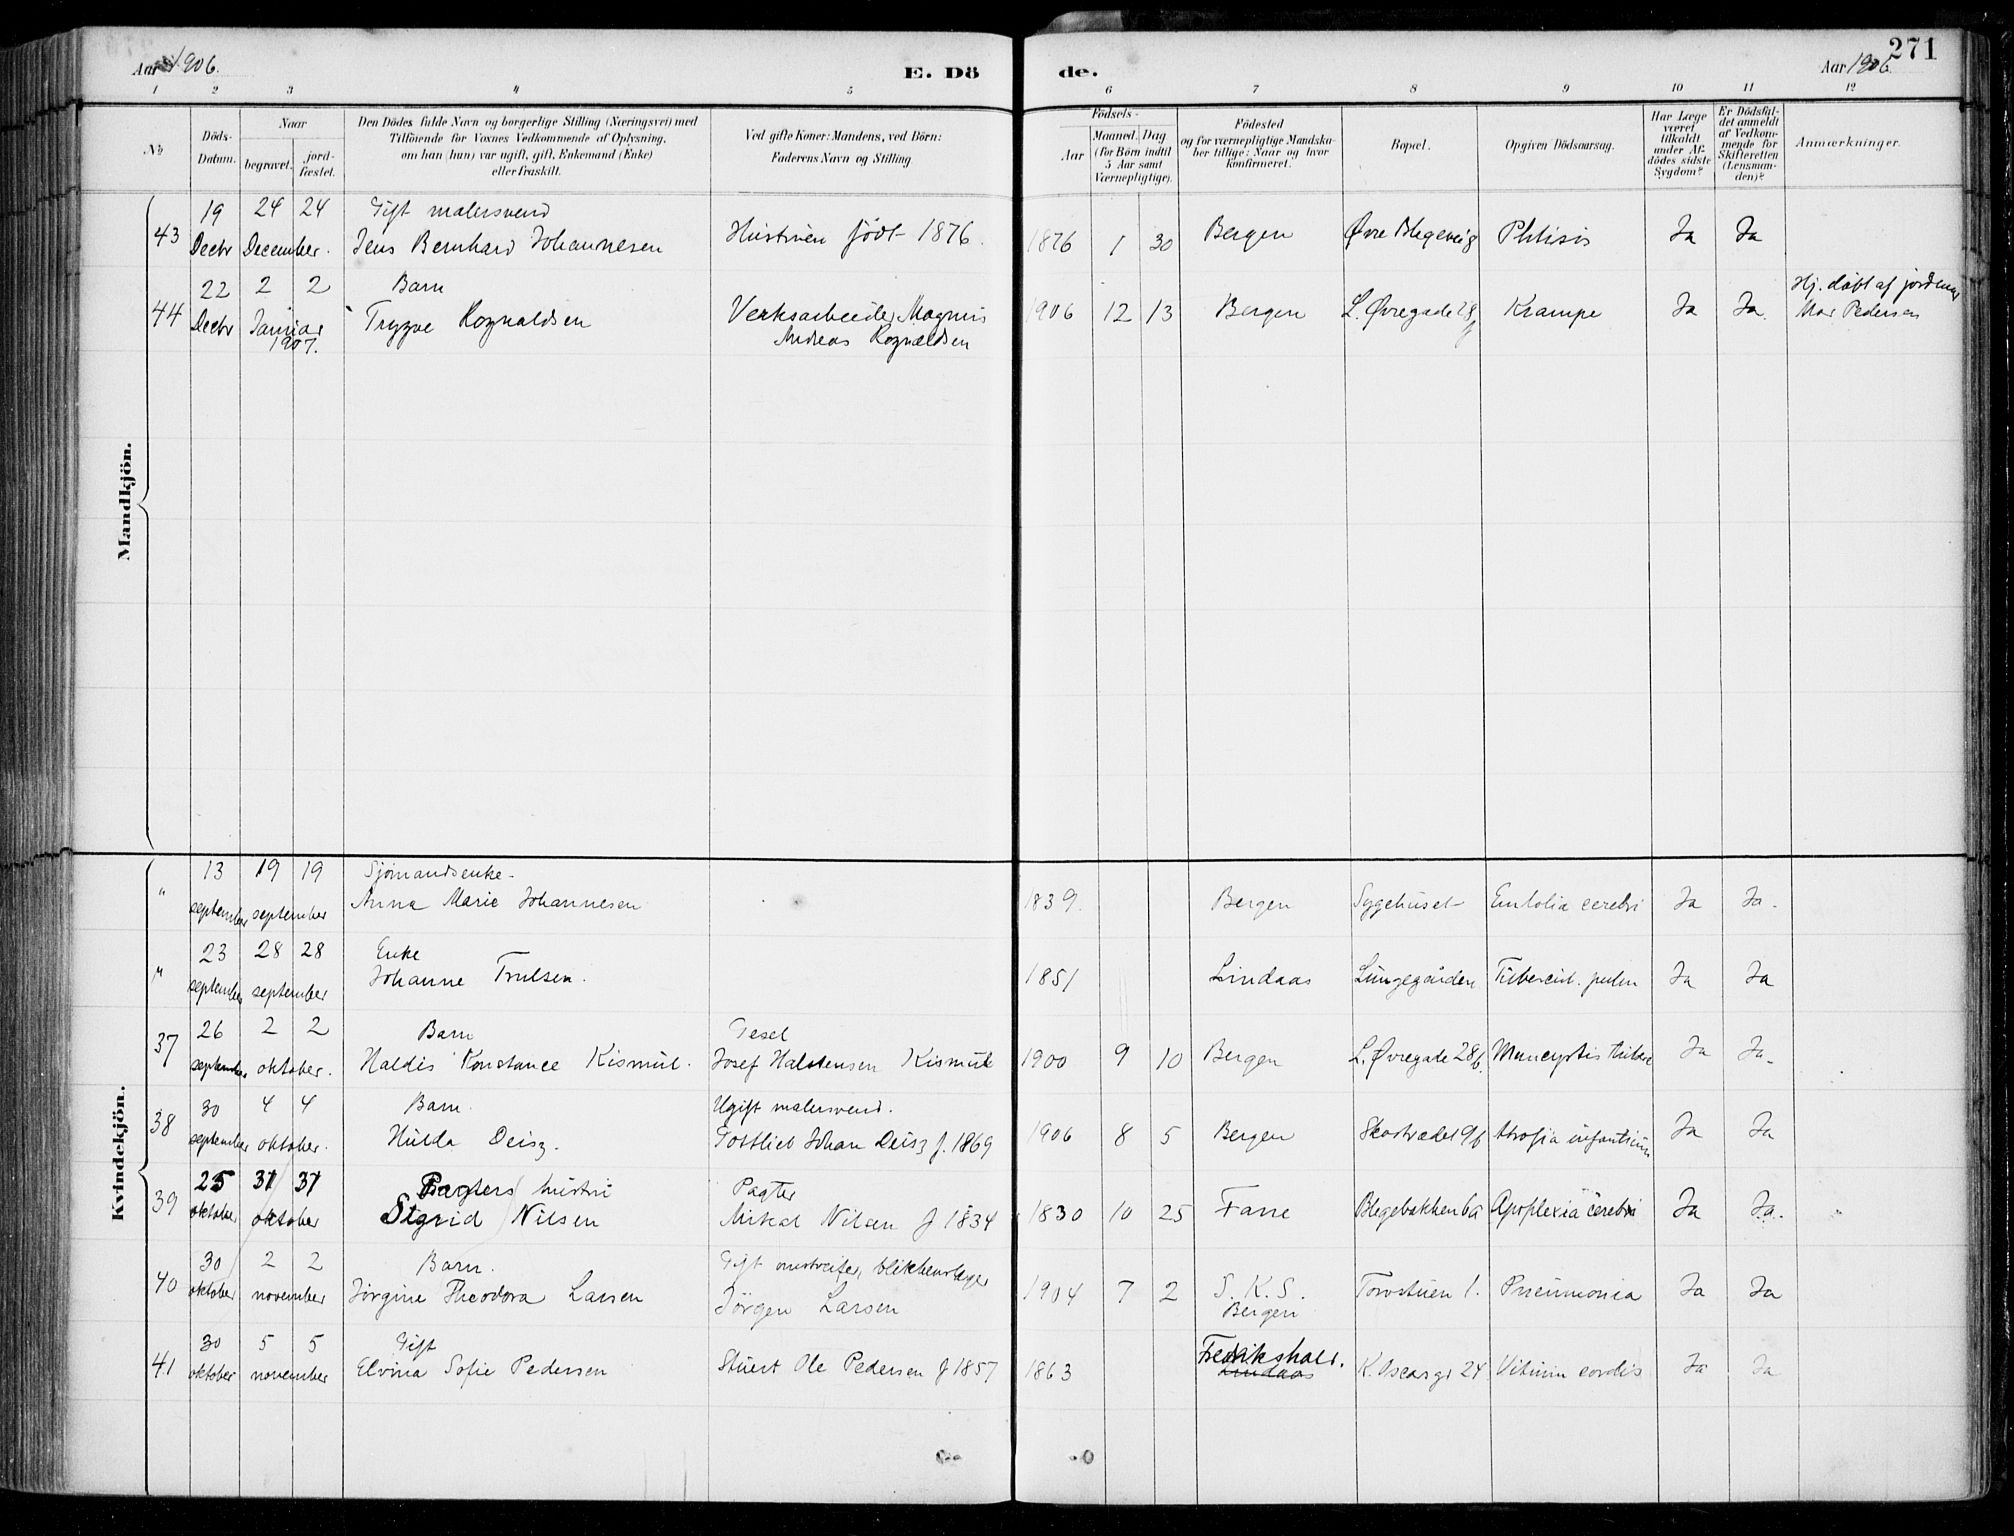 271
Aar 1906.
E. Dö
de.
Aar 1906.
1 2 3 4 5 6 7 8 9 10 11 12
No
Döds-
Datum.
Naar
begravet.
jord-
fæstet.
Den Dödes fulde Navn og borgerlige Stilling (Næringsvei) med
Tilföiende for Voxnes Vedkommende af Oplysning,
om han (hun) var ugift, gift, Enkemand (Enke)
eller fraskilt.
Ved gifte Koner: Mandens, ved Börn:
Faderens Navn og Stilling.
Födsels-
Aar
Maaned. Dag
(for Börn indtil
5 Aar samt
Værnepligtige).
Födested
og for værnepligtige Mandska-
ber tillige: Naar og hvor
konfirmeret.
Bopæl.
Opgiven Dödsaarsag.
Har Læge
været
tilkaldt
under Af-
dödes sidste
Sygdom?
Er Dödsfal-
det anmeldt
af Vedkom-
mende for
Skifteretten
(Lensman-
den)?
Anmærkninger.
Mandkjön.
19 24 24 Gift malersvend
43 Decbr December. Jens Bernhard Johannesen Hustruen född 1876. 1876 1 30 Bergen Øvre Blegevei Phtisis Ja Ja
22 2 2 Barn
44 Decbr Januar Trygve Rognaldsen Verksarbeider Magnus 1906 12 13 Bergen L. Øvregade 28 Krampe Ja Ja. Hj. døbt af jordemor
1907. Andreas Rognaldsen Mar Pedersen
Kvindekjön.
13 19 19 Sjömandsenke.
" september september Anna Marie Johannesen 1839. Bergen Sygehuset cerebri Ja Ja.
23 28 28 Enke
" september september Johanne Trulsen. 1851 Lindaas Lungegården Tubercul. pulm Ja Ja
26 2 2 Barn Gesel
37 september oktober. Haldis Konstance Kismul. Josef Halstensen Kismul 1900 9 10 Bergen L. Øvregade 28b. Ja Ja.
30 4 4 Barn. Ugift malersvend.
38 september oktober. Hulda Deisz. Gottlieb Johan Deisz f. 1869 1906 8 5 Bergen Skostrædet 9b Atrofia infantium Ja Ja
25 31 31 Pagters hustru Pagter
39 oktober oktober Sigrid Nilsen Mikal Nilsen f 1834 1830 10 25 Fane Blegebakken 6a Apoplexia cerebri Ja Ja.
30 2 2 Barn. Gift omstreifer, blikkenslager
40 oktober november Jörgine Theodora Larsen Jörgen Larsen 1904 7 2 S. K. S. Bergen Torvstuen 1. Pneumonia Ja Ja
30 5 5 Gift
41 oktober november Elvina Sofie Pedersen Stuert Ole Pedersen f 1857 1863 Fredrikshald. Lindaas K. Oscarsg 24 Vitium cordis Ja Ja